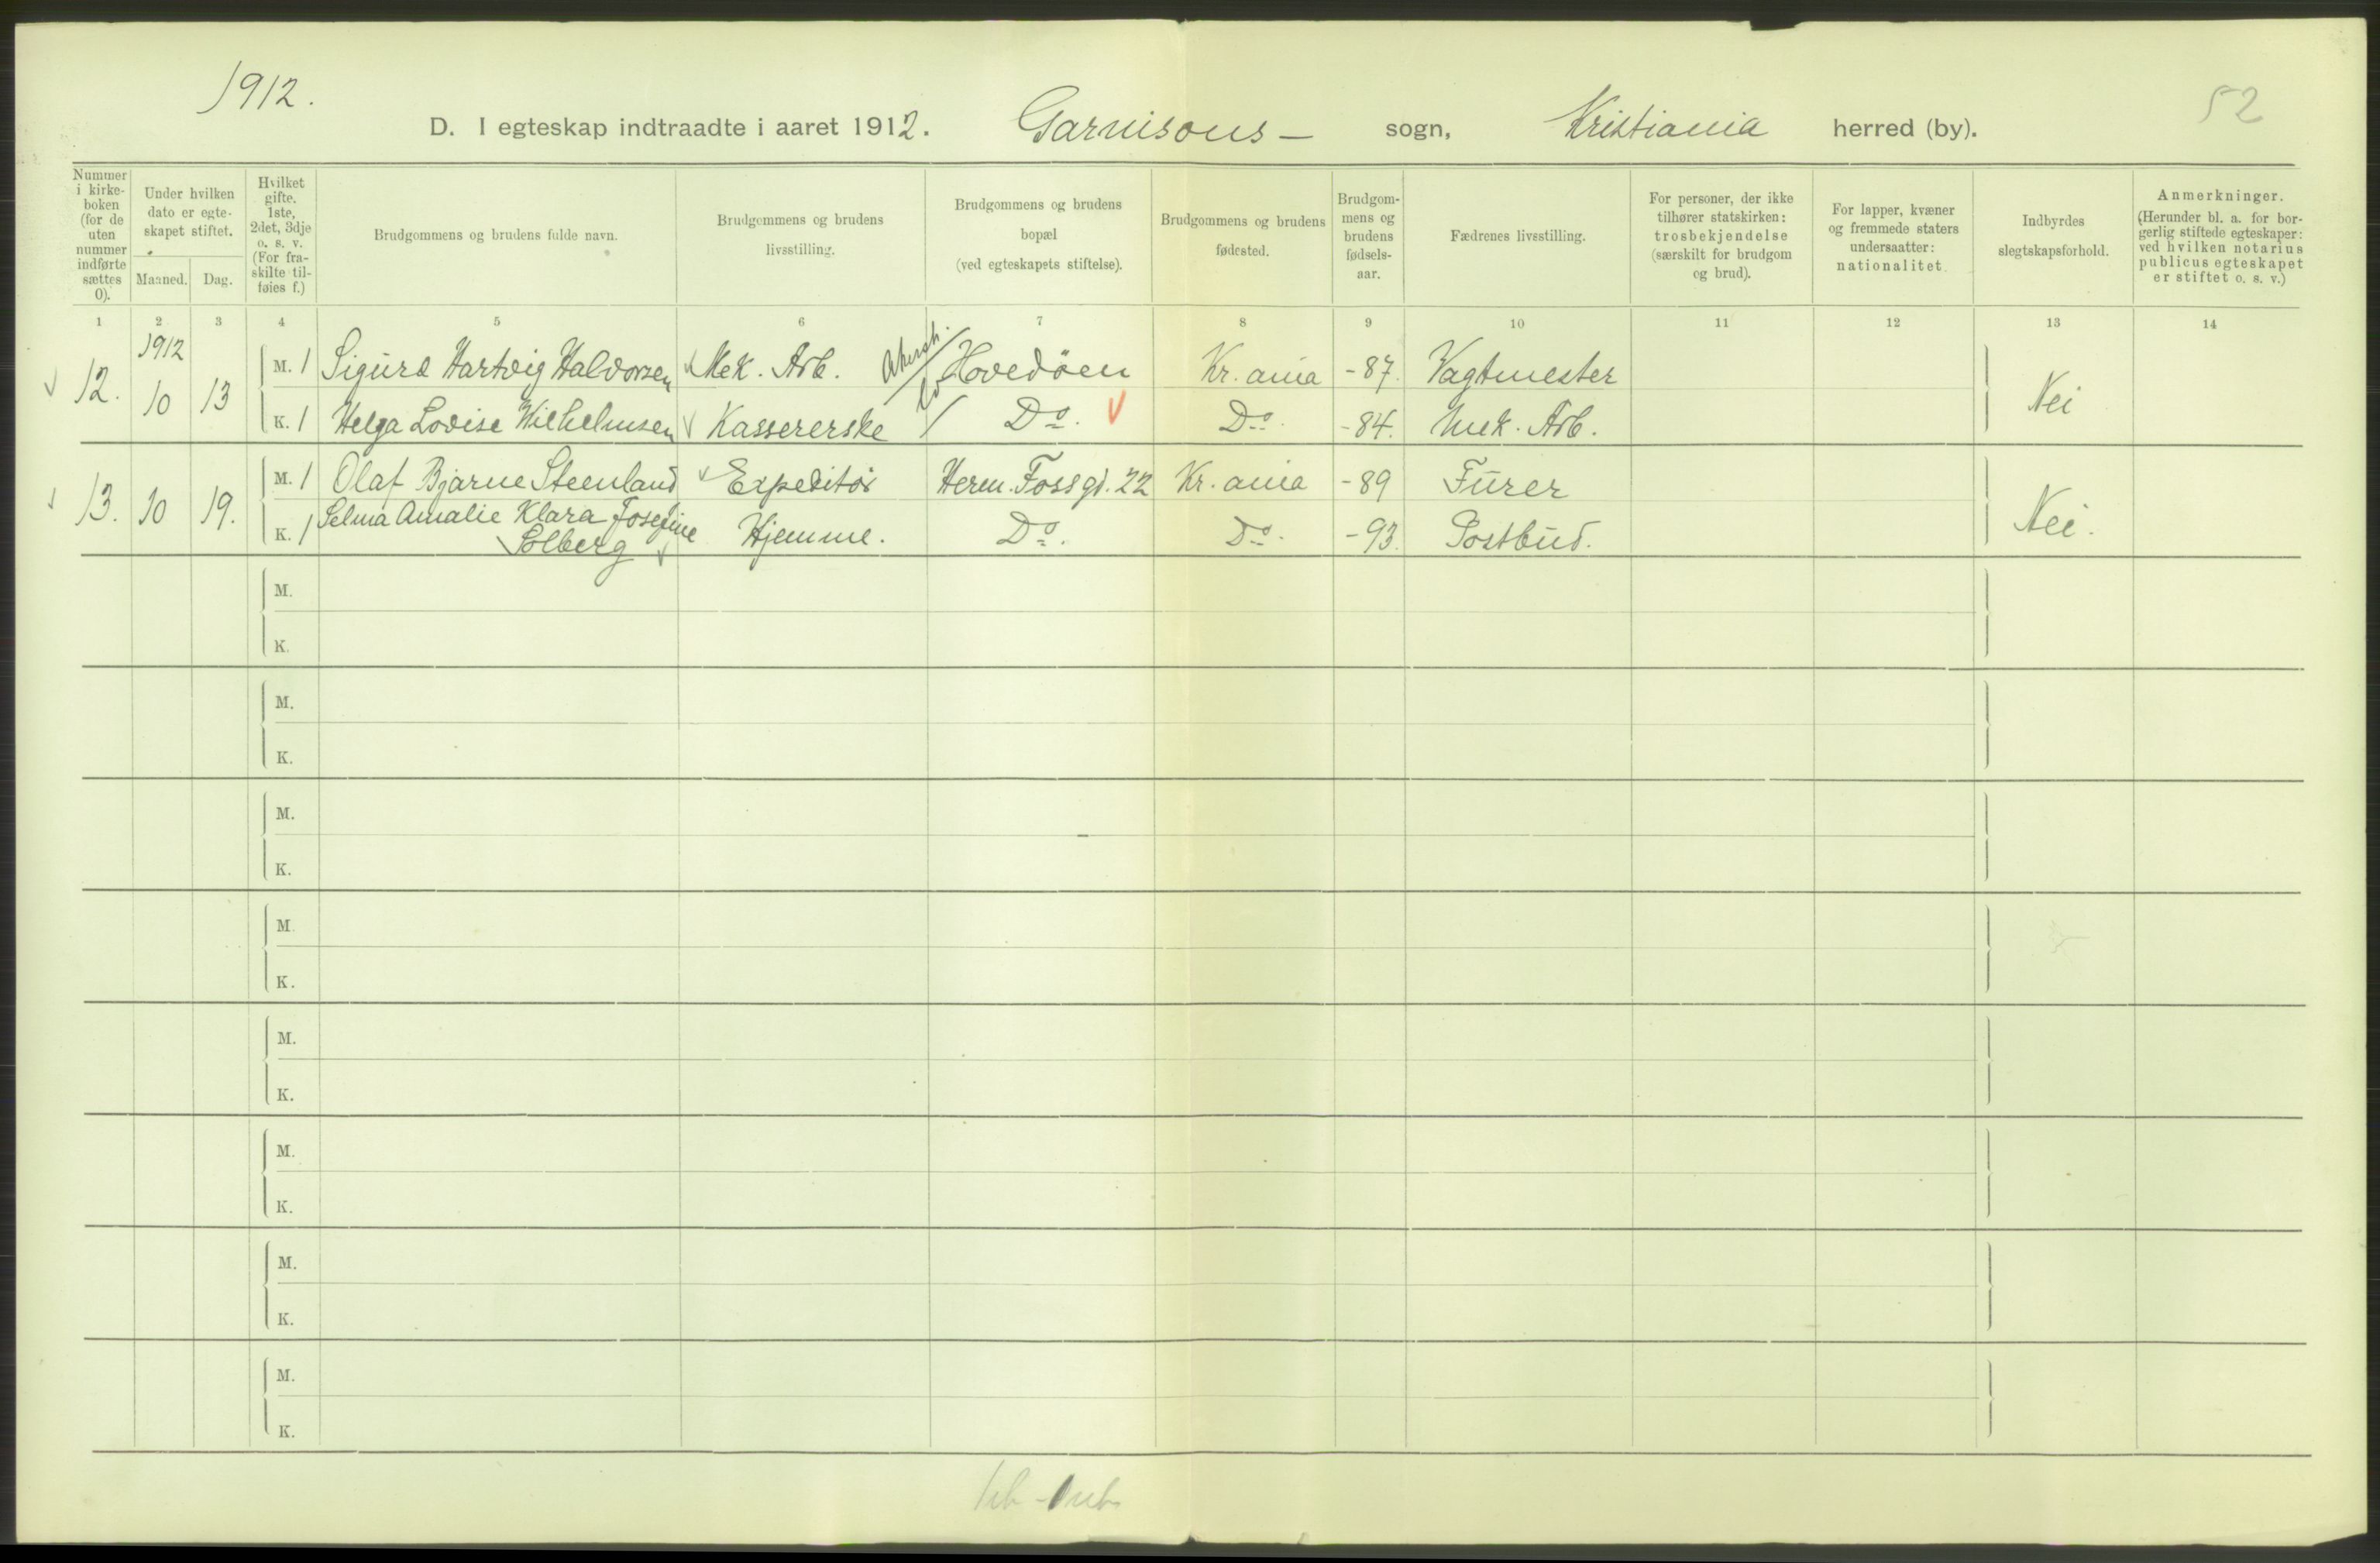 1912.
52
D. I egteskap indtraadte i aaret 1912. Garnisons- sogn, Kristiania herred (by).
Nummer i kirke-boken (for de uten nummer indførte sættes 0).
Under hvilken dato er egte-skapet stiftet.
Maaned. Dag.
Hvilket gifte. 1ste, 2det, 3dje o. s. v. (For fra-skilte til-føies f.)
Brudgommens og brudens fulde navn.
Brudgommens og brudens livsstilling.
Brudgommens og brudens bopæl (ved egteskapets stiftelse).
Brudgommens og brudens fødested.
Brudgom-mens og brudens fødsels-aar.
Fædrenes livsstilling.
For personer, der ikke tilhører statskirken: trosbekjendelse (særskilt for brudgom og brud).
For lapper, kvæner og fremmede staters undersaatter: nationalitet.
Indbyrdes slegtskapsforhold.
Anmerkninger. (Herunder bl. a. for bor-gerlig stiftede egteskaper: ved hvilken notarius publicus egteskapet er stiftet o. s. v.)
1 2 3 4 5 6 7 8 9 10 11 12 13 14
1912
12. 10 13 M. 1 Sigurd Hartvig Halvorsen Mek. Arb. Akersh. Hovedöen Kr.ania -87. Vagtmester Nei
K. 1 Helga Lovise Wilhelmsen Kassererske Do. Do. -84. Mek. Arb.
13. 10 19. M. 1 Olaf Bjarne Steenland Expeditör Herm. Fossgd. 22 Kr.ania -89 Furer Nei.
K. 1 Selma Amalie Klara Josefine Solberg Hjemme. Do. Do. -93. Postbud.
M.
K.
M.
K.
M.
K.
M.
K.
M.
K.
M.
K.
M.
K.
M.
K.